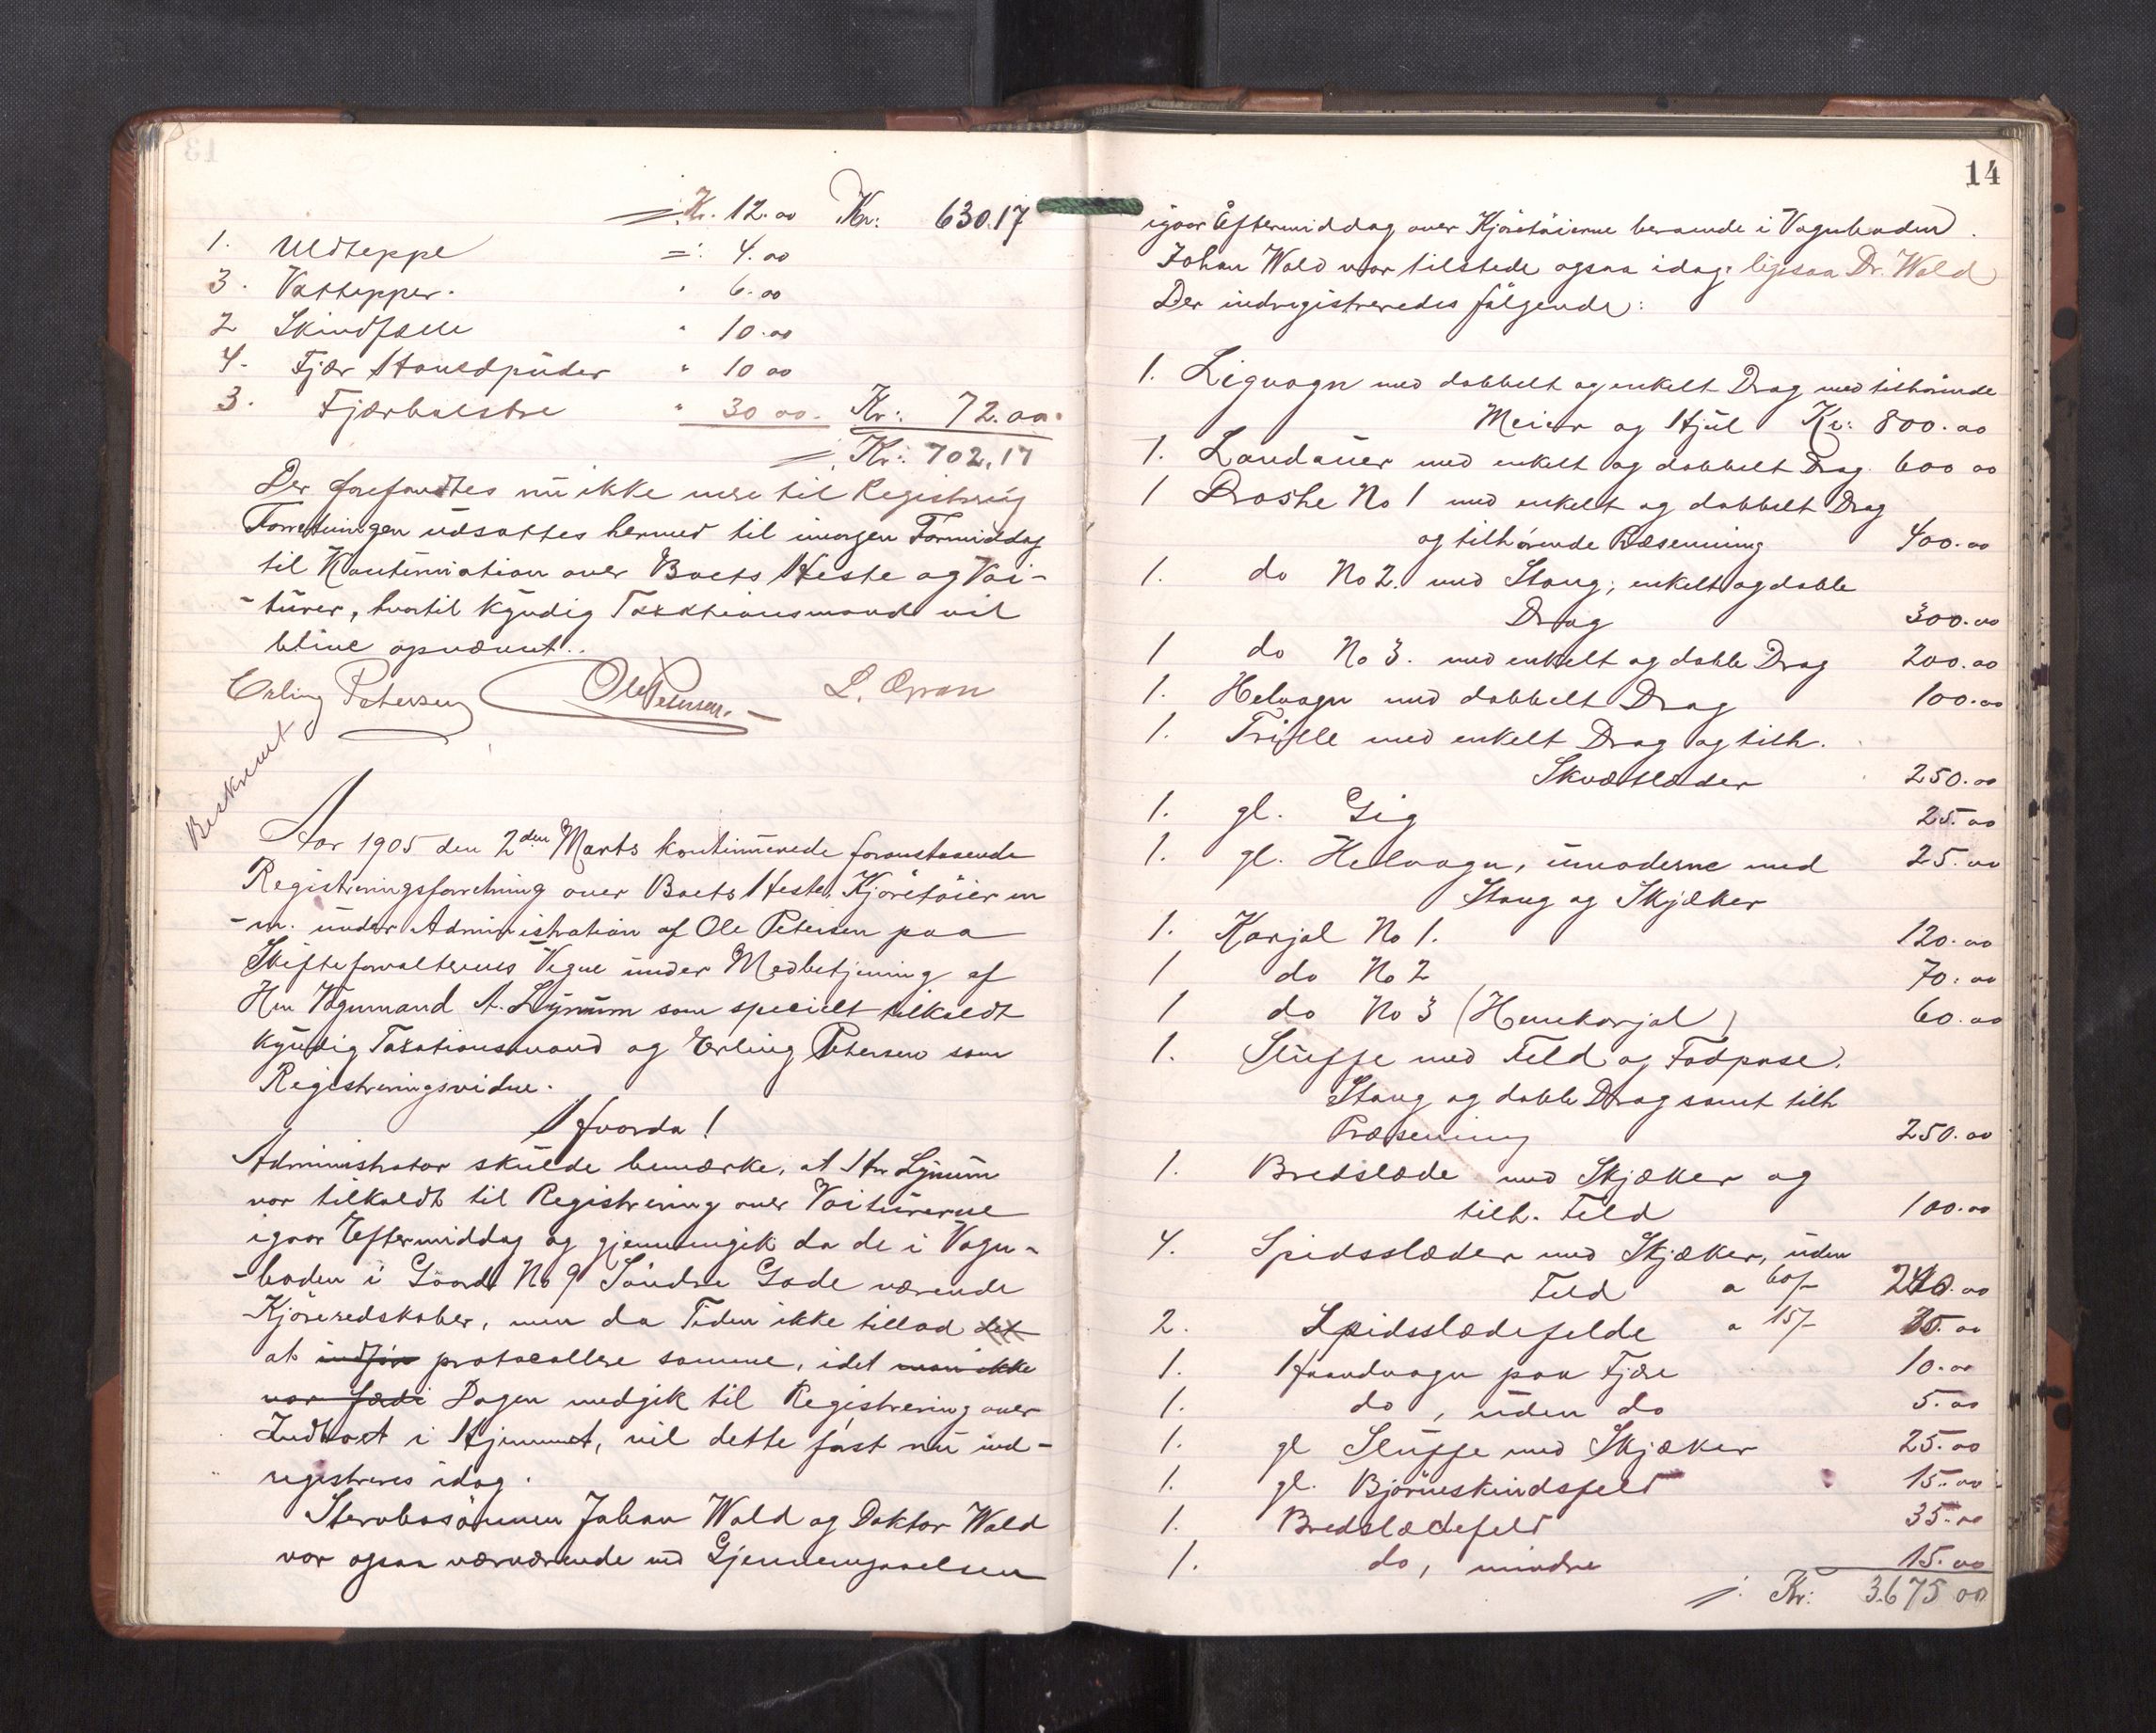 ./. Kr. 12.00 Kr: 630.17
1. Uldteppe =:. 4.00
3. Vattepper. " 6.00
2 Skindfælle " 10.00
4. Fjær Hovedpuder " 10 00
3. Fjærbolstre " 30 00. Kr: 72.00.
./. Kr: 702.17
Der forefandtes nu ikke mere til Registring
Forretningen udsattes hermed til imorgen Formiddag
til Kontinuation over Boets Heste og Voi-
-turer, hvortil kyndig Taxationsmand vil
blive opnævnt..
Erling Petersen Ole Petersen. L. Opran
Beskrevet
Aar 1905 den 2den Marts kontinuerede foranstaaende
Registreringsforretning over Boets Heste, Kjøretøier m
-m. under Administration af Ole Petersen paa
Skifteforvalterens Vegne under Medbetjening af
Hrr Vognmand A. Lynum som specielt tilkaldt
kyndig Taxationsmand og Erling Petersen som
Registreringsvidne.
Hvorda!
Administrator skulde bemærke, at Hr Lynum
var tilkaldt til Registrering over Voiturerne
igaar Eftermiddag og gjennemgik da de i Vogn-
-boden i Gaard No 9 Søndre Gade værende
Kjøreredskaber, men da Tiden ikke tillod det
at indføre protocollere samme, idet man ikke
var fædi Dagen medgik til Registrering over
Indboet i Hjemmet, vil dette først nu ind-
registreres idag.
Stervbosønnen Johan Wold og Doktor Wold
var ogsaa nærværende ved Gjennemgaaelsen
14
igaar Eftermiddag over Kjøretøierne beroende i Vognboden.
Johan Wold var tilstede ogsaa idag. ligesaa Dr. Wold
Der indregistreredes følgende:
1. Ligvogn med dobbelt og enkelt Drag med tilhørende
Meier og Hjul Kr: 800.00
1. Landauer med enkelt og dobbelt Drag. 600 00
1 Droshe No 1 med enkelt og dobbelt Drag
og tilhørende Præsenning 400.00
1. do No 2. med Stang, enkelt og doble
Drag 300.00
1 do No 3. med enkelt og doble Drag 200.00
1. Helvogn med dobbelt Drag 100.00
1. Trille med enkelt Drag og tilh.
Skvætlæder 250.00
1. gl. Gig 25.00
1. gl. Helvogn, umoderne med 25.00
Stang og Skjæker
1. Karjol No 1. 120.00
1 do No 2 70.00
1 do No 3 (Hemkarjol) 60.00
1. Sluffe med Feld og Fodpose.
Stang og doble Drag samt tilh
Præsenning 250.00
1. Bredslæde med Skjæker og
tilh. Feld 100.00
4. Spidsslæder med Skjæker, uden
Feld a 60/- 240.00
2. Spidsslædefelde a 15/- 30.00
1. Haandvogn paa Fjære 10.00
1. do, uden do 5.00
1. gl Sluffe med Skjæker 25.00
1. gl. Bjørneskindsfeld 15.00
1. Bredslædefeld 35.00
1. do, mindre 15.00
./. Kr: 3.675 00